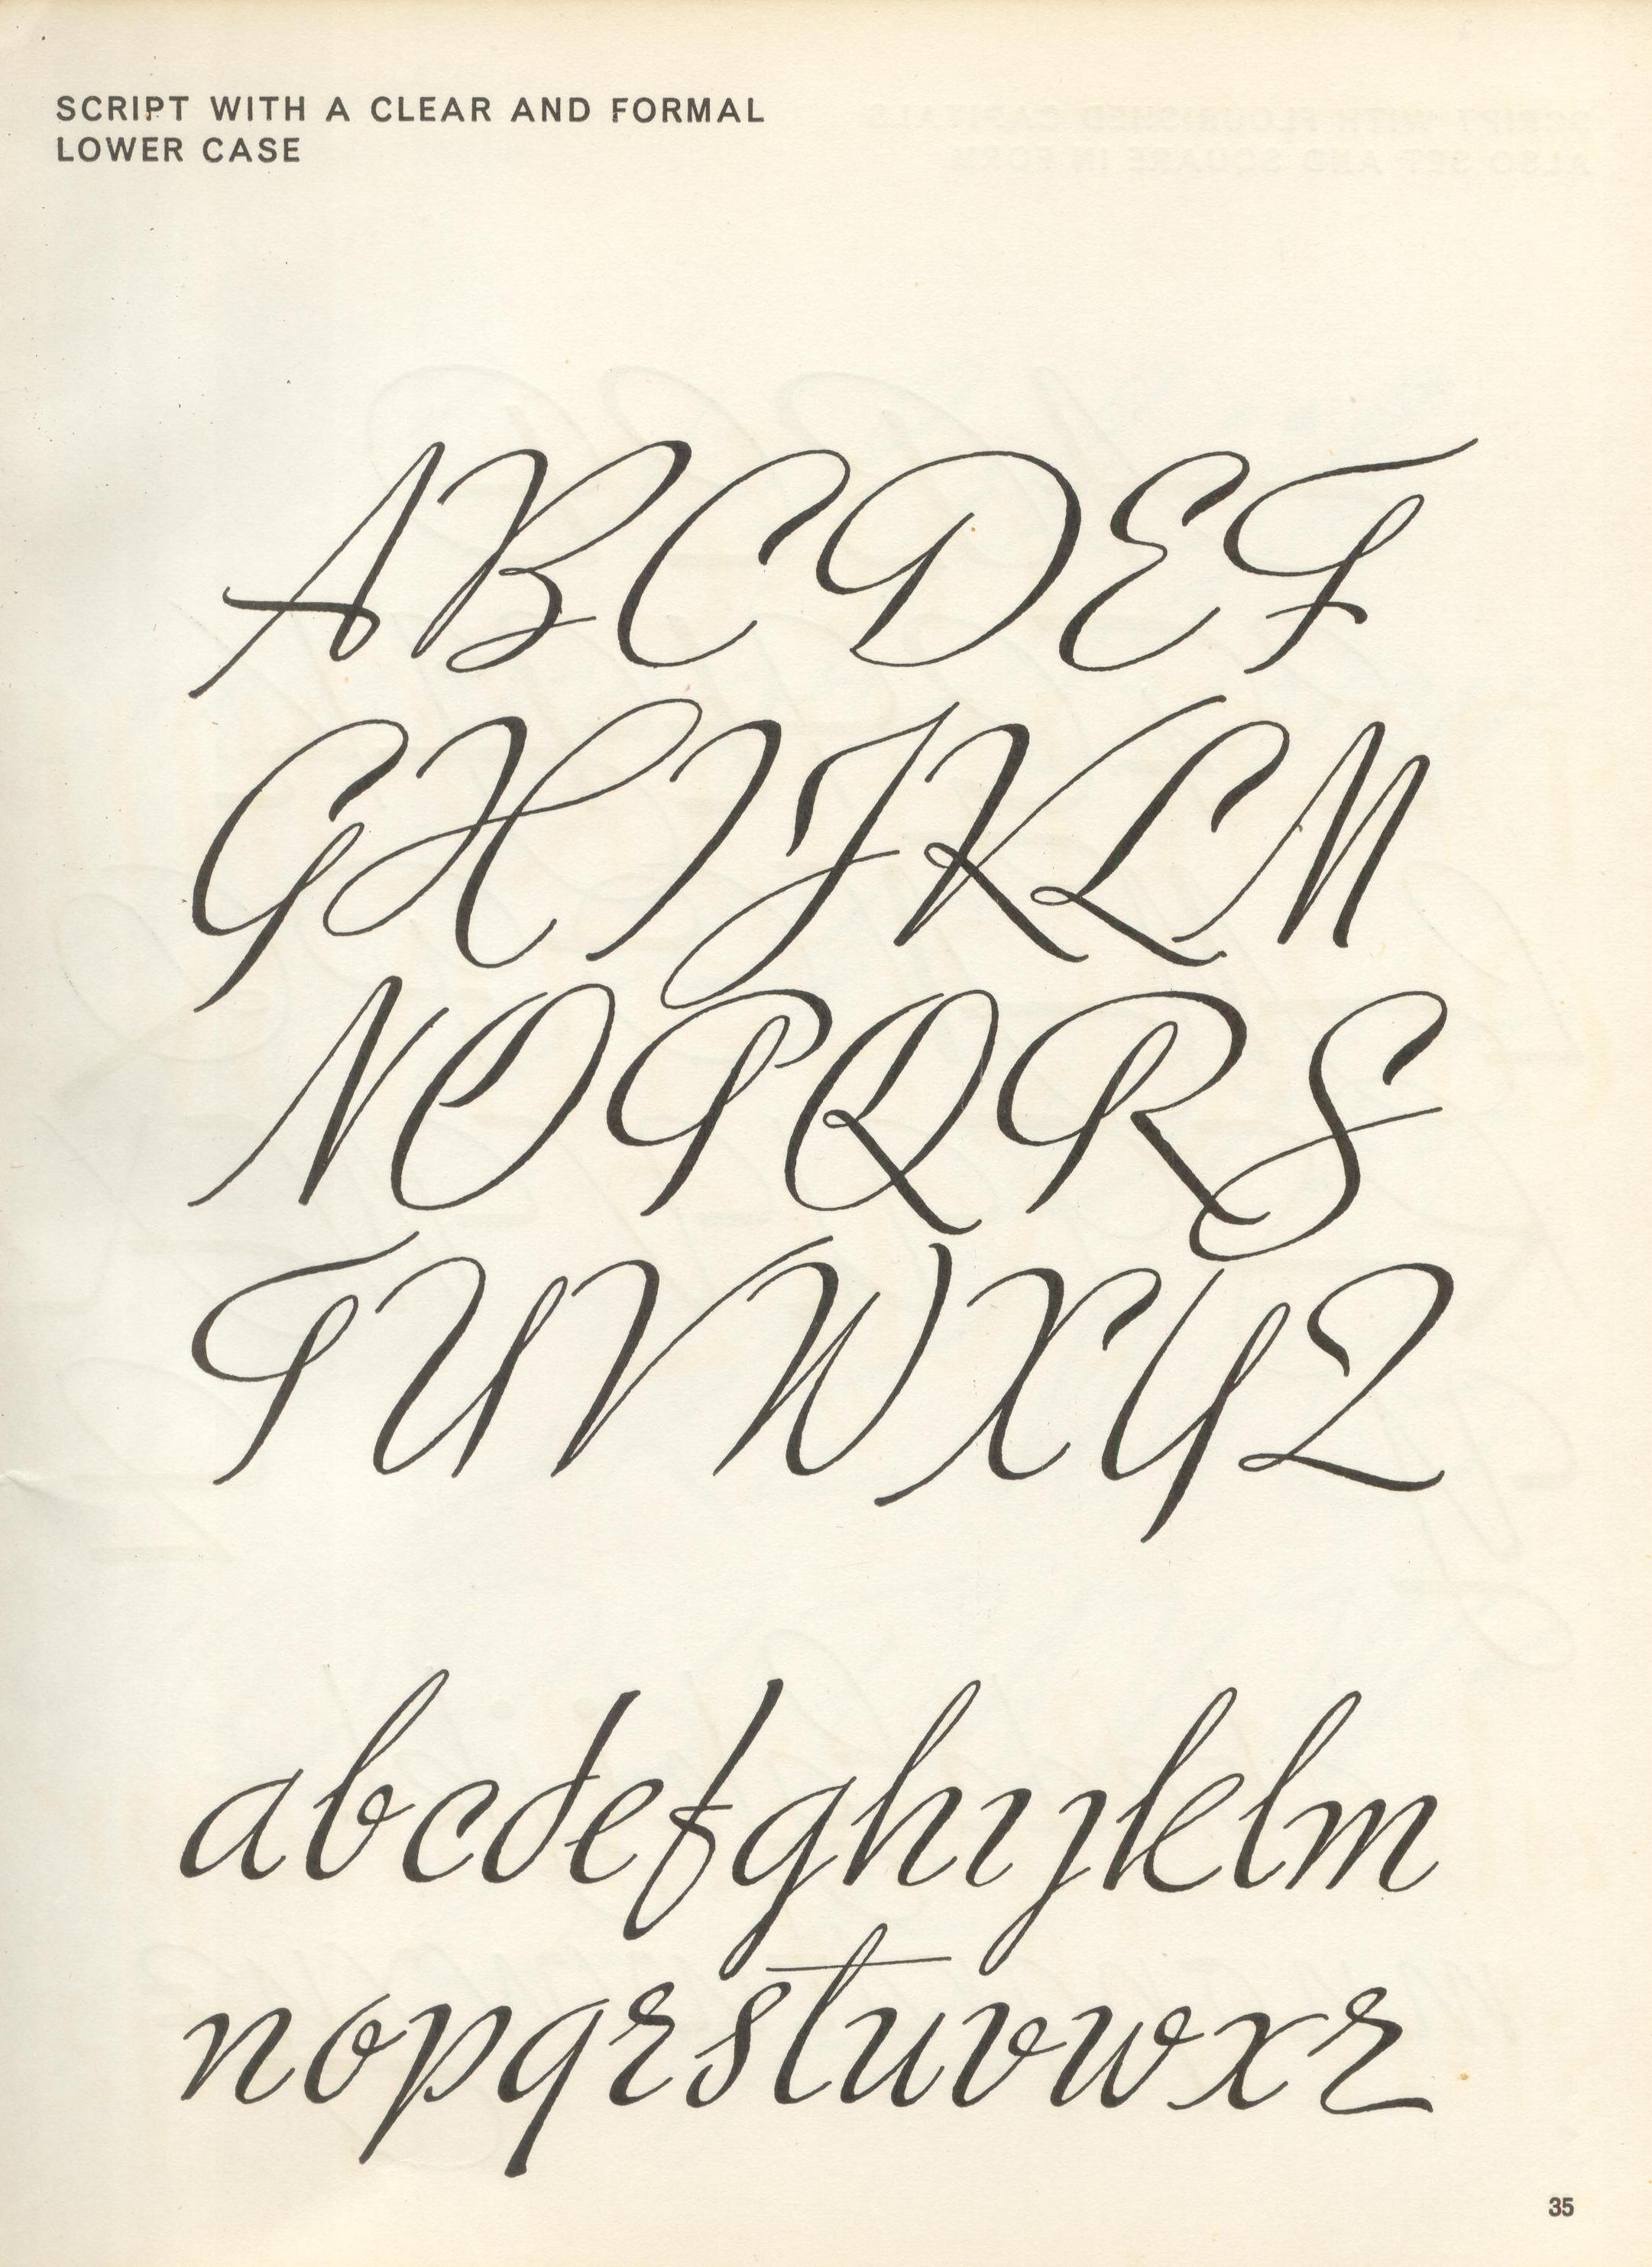 SCRIPT WITH A CLEAR AND FORMAL
LOWER CASE
ABCDEF
GHIJKLM
NOPQRS
TUVWXYZ
abcdefghijklm
nopqrstuvwxz
35